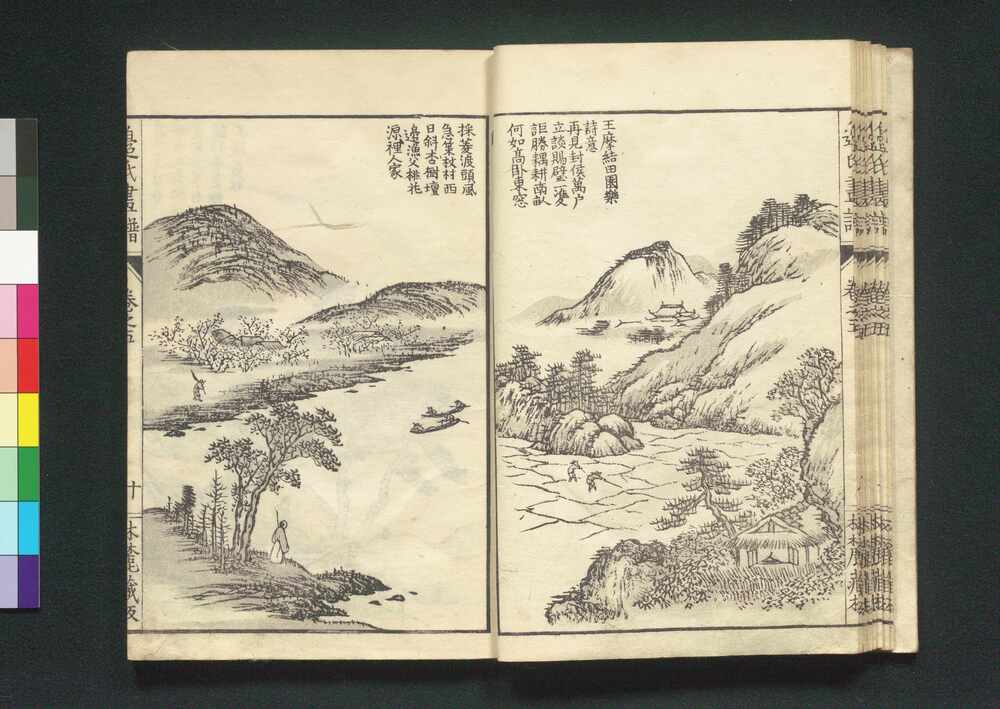 王摩結田園樂
詩意
再見封侯萬户
立談賜璧一雙
詎勝耦耕南畝
何如高卧東窓
採菱渡頭風
急策杖村西
日斜杏樹壇
邉漁父桃花
源裡人家
邉氏畫譜
卷之五
十
林麓藏版